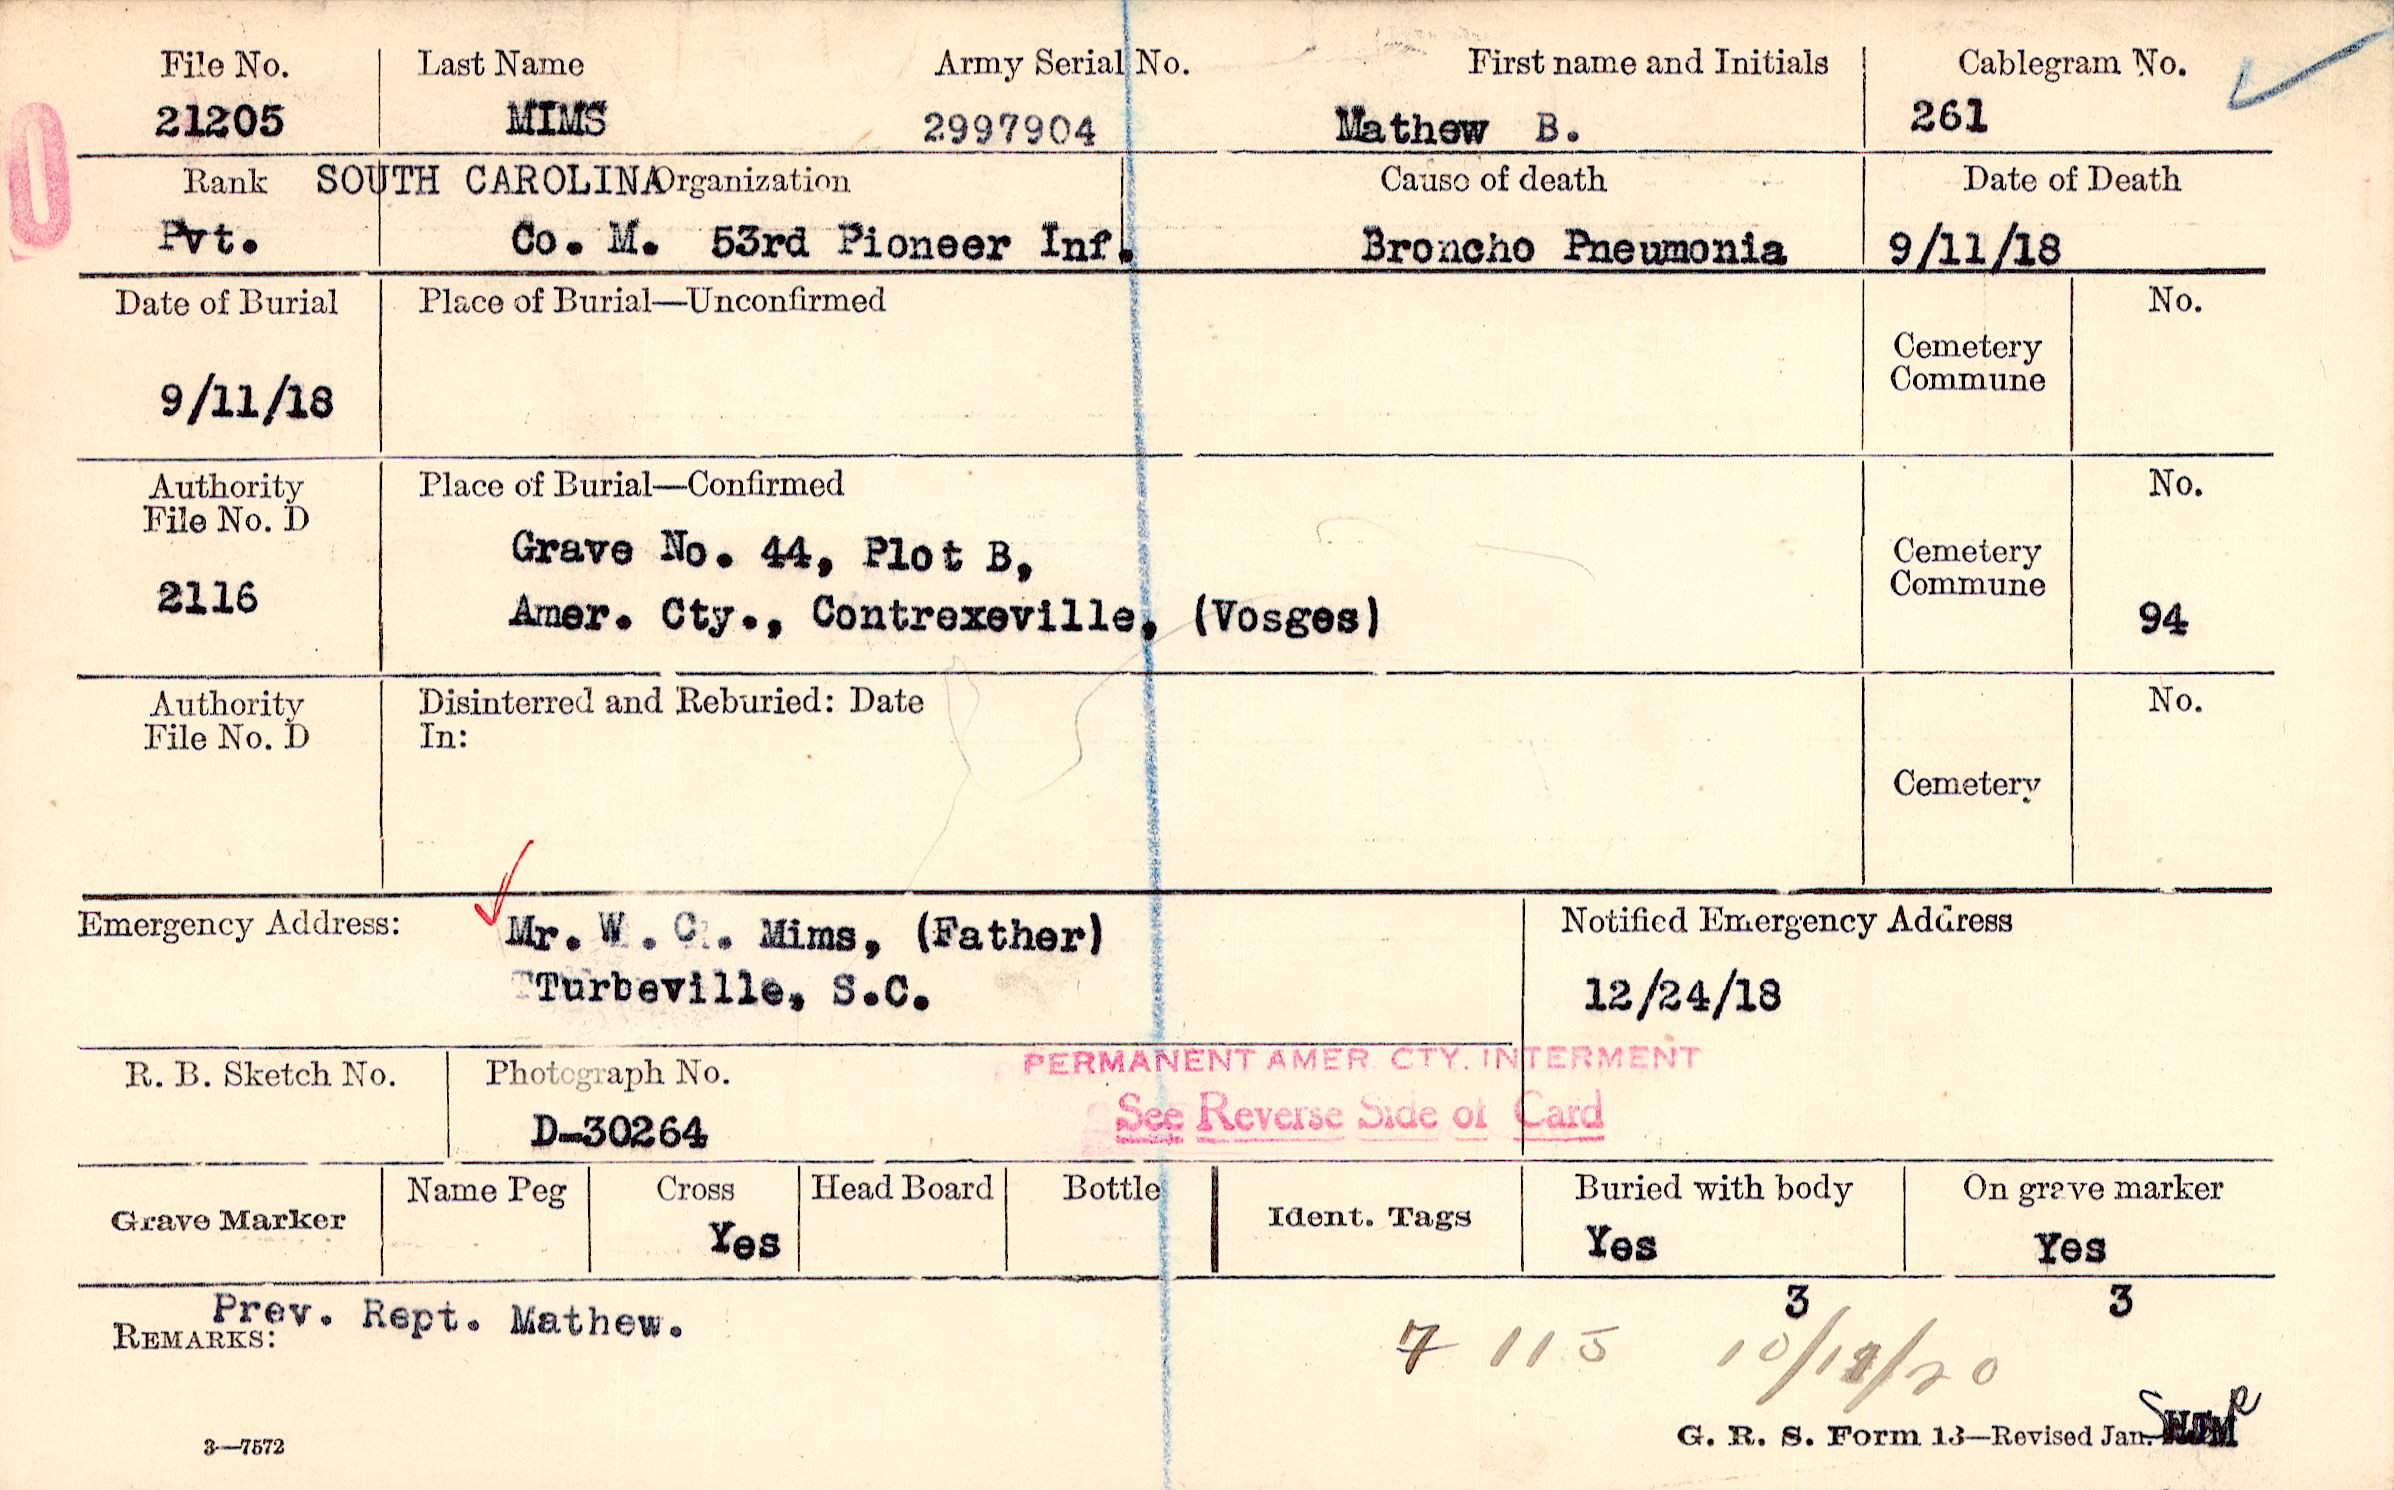 File No. Last Name Army Serial No. First name and Initials Cablegram No.
21205 MIMS 2997904 Mathew B. 261
Rank SOUTH CAROLINA Organization Cause of death Date of Death
Pvt. Co. M. 53rd Pioneer Inf. Broncho Pneumonia 9/11/18
Date of Burial Place of Burial—Unconfirmed No.
Cemetery
Commune
9/11/18
Authority Place of Burial—Confirmed No.
File No. D
Grave No. 44, Plot B, Cemetery
2116 Commune
Amer. Cty., Contrexeville, (Vosges) 94
Authority Disinterred and Reburied: Date No.
File No. D In:
Cemetery
Emergency Address: Mr. W. C. Mims, (Father) Notified Emergency Address
Turbeville, S.C. 12/24/18
R. B. Sketch No. Photograph No. PERMANENT AMER. CTY. INTERMENT
D-30264 See Reverse Side of Card
Name Peg Cross Head Board Bottle Buried with body On grave marker
Grave Marker Ident. Tags
Yes Yes Yes
3 3
Prev. Rept. Mathew.
REMARKS: 7 115 10/19/20
3—7572 G. R. S. Form 13—Revised Jan.